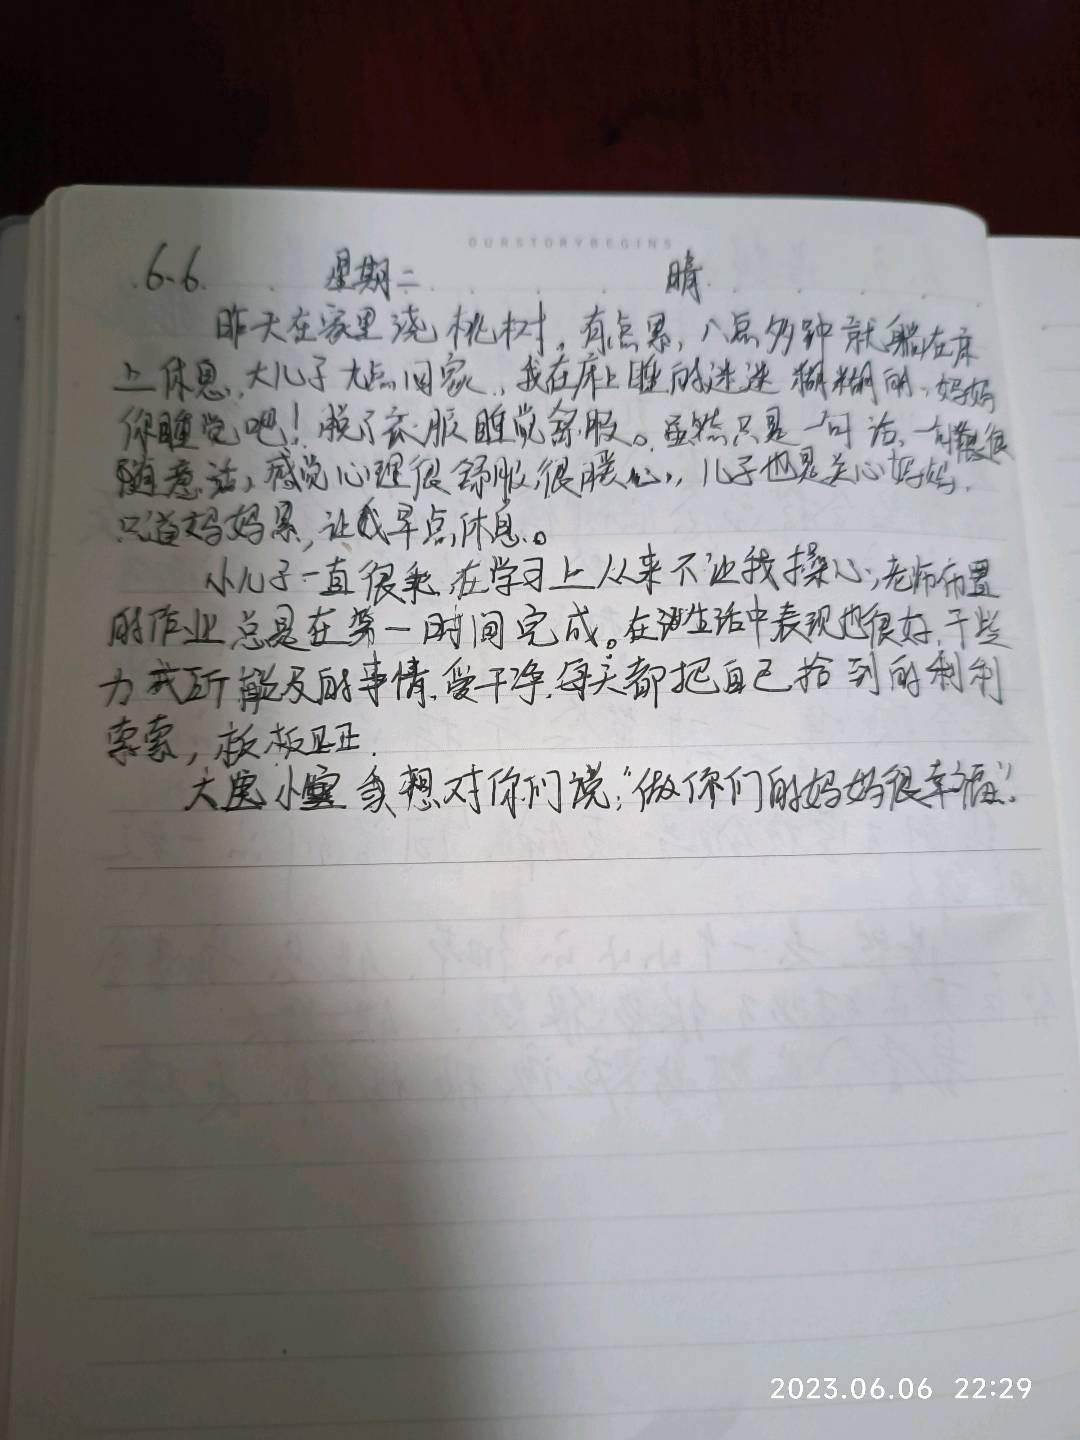 OURSTORYBEGINS
6.6 星期二 晴
昨天在家里浇桃树,有点累,八点多钟就躺在床
上休息,大儿子九点回家,我在床上睡的迷迷糊糊的,妈妈
你睡觉吧!脱了衣服睡觉舒服。虽然只是一句话,一句很
随意话,感觉心理很舒服很暖心,儿子也是关心妈妈,
只道妈妈累,让我早点休息。
小儿子一直很乖,在学习上从来不让我操心,老师布置
的作业总是在第一时间完成。在生活中表现也很好,干些
力我所能及的事情,爱干净,每天都把自己拾到的利利
索索,板板正正.
大宝小宝我想对你们说:“做你们的妈妈很幸福”.
2023.06.06 22:29